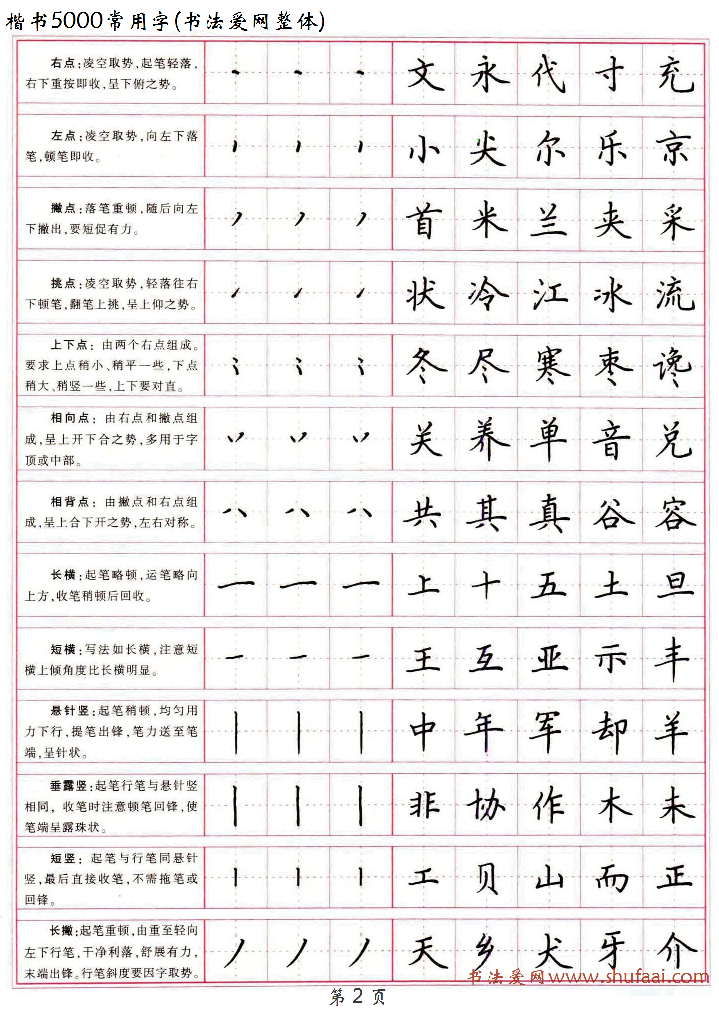 楷书5000常用字(书法爱网整体)
右点:凌空取势,起笔轻落,
右下重按即收,呈下俯之势。
文 永 代 寸 充
左点:凌空取势,向左下落
笔,顿笔即收。
小 尖 尔 乐 京
撇点:落笔重顿,随后向左
下撇出,要短促有力。
首 米 兰 夹 采
挑点:凌空取势,轻落往右
下顿笔,翻笔上挑,呈上仰之势。
状 冷 江 冰 流
上下点: 由两个右点组成。
要求上点稍小、稍平一些,下点
稍大、稍竖一些,上下要对直。
冬 尽 寒 枣 谗
相向点: 由右点和撇点组
成,呈上开下合之势,多用于字
顶或中部。
关 养 单 音 兑
相背点: 由撇点和右点组
成,呈上合下开之势,左右对称。
共 其 真 谷 容
长横:起笔略顿,运笔略向
上方,收笔稍顿后回收。
上 十 五 土 旦
短横:写法如长横,注意短
横上倾角度比长横明显。
王 互 亚 示 丰
悬针竖:起笔稍顿,均匀用
力下行,提笔出锋,笔力送至笔
端,呈针状。
中 年 军 却 羊
垂露竖:起笔行笔与悬针竖
相同, 收笔时注意顿笔回锋,使
笔端呈露珠状。
非 协 作 木 未
短竖: 起笔与行笔同悬针
竖,最后直接收笔,不需拖笔或
回锋。
工 贝 山 而 正
长撇:起笔重顿,由重至轻向
左下行笔,干净利落,舒展有力,
末端出锋。行笔斜度要因字取势。
天 乡 犬 牙 介
书法爱网www.shufaai.com
第 2 页